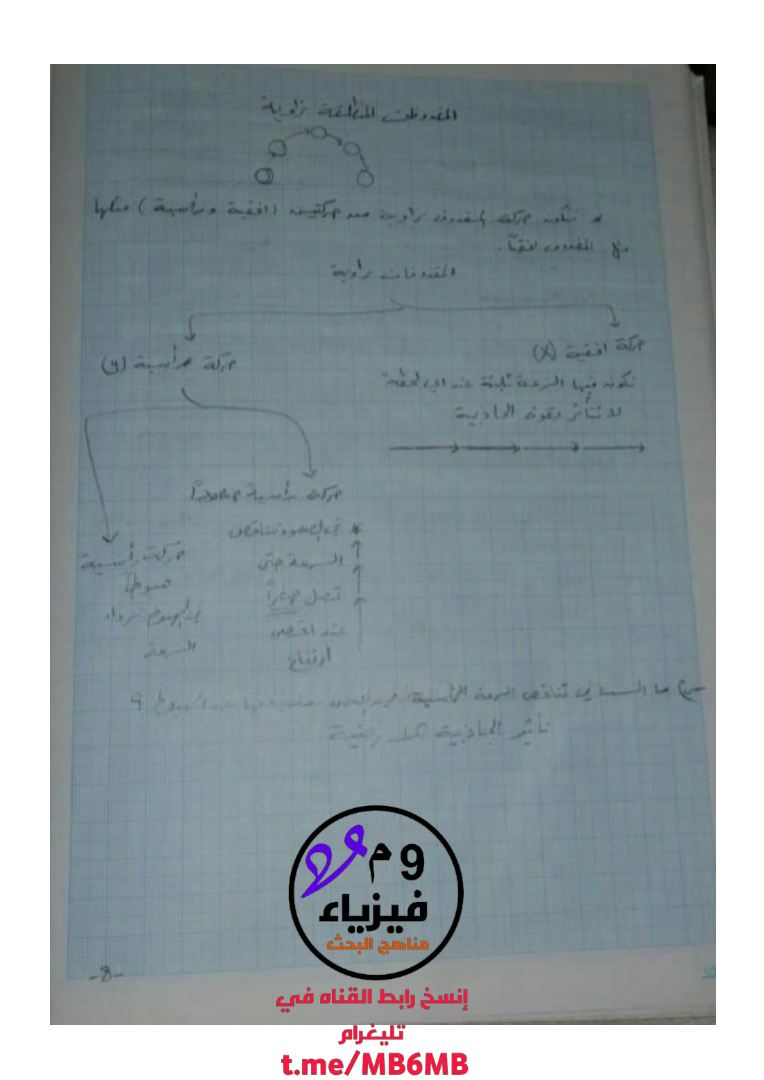 المقذوفات المنطلقة بزاوية
* تتكون حركة المقذوف بزاوية من حركتين (افقية ورأسية) مثلها
مثل المقذوف افقياً.
المقذوفات بزاوية
حركة افقية (X)
تكون فيها السرعة ثابتة عند اي لحظة
لا تتأثر بقوة الجاذبية
حركة رأسية (y)
حركة رأسية صعوداً
في الصعود تتناقص
السرعة حتى
تصل صفراً
عند اقصى
ارتفاع
حركة رأسية
هبوطاً
في الهبوط تزداد
السرعة
س/ ما السبب في تناقص السرعة الرأسية في الصعود
تأثير الجاذبية
-8-
و م
فيزياء
مناهج البحث
إنسخ رابط القناه في
تليغرام
t.me/MB6MB